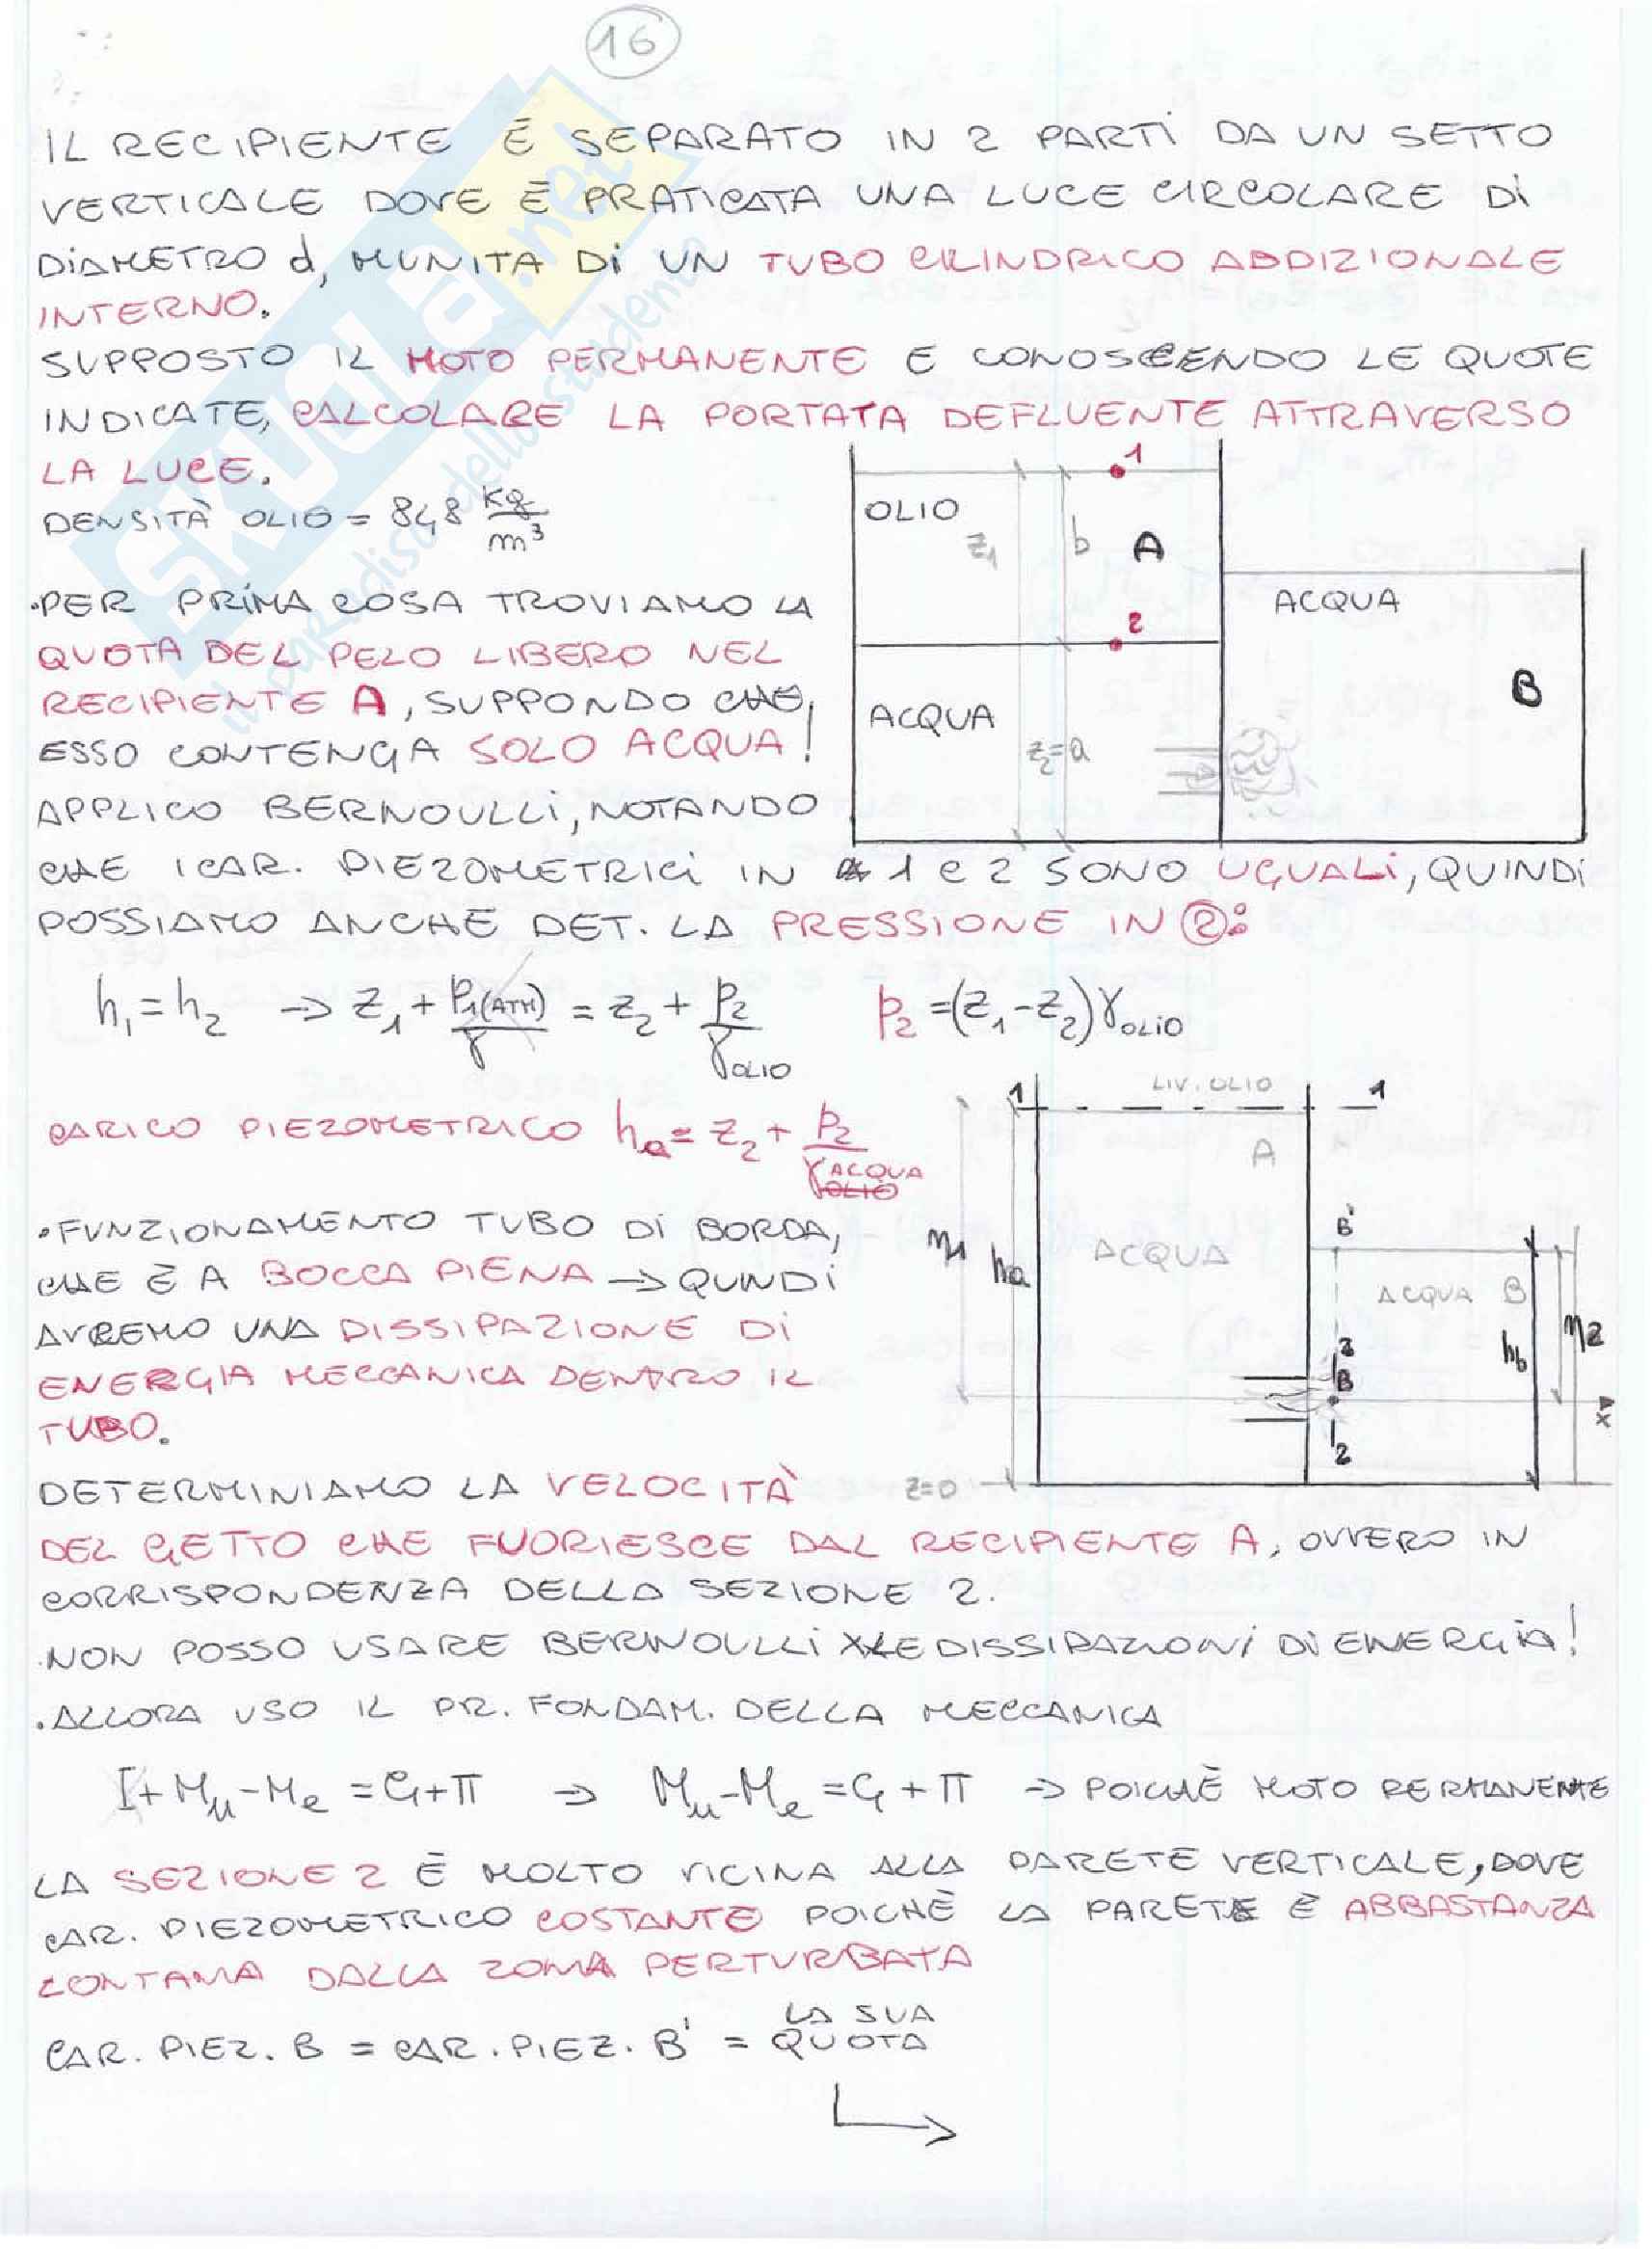 16
IL RECIPIENTE È SEPARATO IN 2 PARTI DA UN SETTO
VERTICALE DOVE È PRATICATA UNA LUCE CIRCOLARE DI
DIAMETRO d, MUNITA DI UN TUBO CILINDRICO ADDIZIONALE
INTERNO.
SUPPOSTO IL MOTO PERMANENTE E CONOSCENDO LE QUOTE
INDICATE, CALCOLARE LA PORTATA DEFLUENTE ATTRAVERSO
LA LUCE.
DENSITÀ OLIO = 848 kg/m³
1
OLIO
z₁
b
A
2
ACQUA
z₂=a
ACQUA
B
•PER PRIMA COSA TROVIAMO LA
QUOTA DEL PELO LIBERO NEL
RECIPIENTE A, SUPPONDO CHE,
ESSO CONTENGA SOLO ACQUA!
APPLICO BERNOULLI, NOTANDO
CHE I CAR. PIEZOMETRICI IN 1 e 2 SONO UGUALI, QUINDI
POSSIAMO ANCHE DET. LA PRESSIONE IN ②:
h₁=h₂ → z₁ + P₁(ATM)/γ = z₂ + p₂/γOLIO p₂ =(z₁-z₂)γOLIO
CARICO PIEZOMETRICO ha = z₂ + p₂/γACQUA
OLIO
1 LIV. OLIO 1
A
η1
ha
ACQUA
B'
ACQUA B
2
B
2
hb
η2
x
z=0
•FUNZIONAMENTO TUBO DI BORDA,
CHE È A BOCCA PIENA → QUINDI
AVREMO UNA DISSIPAZIONE DI
ENERGIA MECCANICA DENTRO IL
TUBO.
DETERMINIAMO LA VELOCITÀ
DEL GETTO CHE FUORIESCE DAL RECIPIENTE A, OVVERO IN
CORRISPONDENZA DELLA SEZIONE 2.
•NON POSSO USARE BERNOULLI X LE DISSIPAZIONI DI ENERGIA!
•ALLORA USO IL PR. FONDAM. DELLA MECCANICA
I+Mu-Me = G+Π ⇒ Mu-Me = G+Π ⇒ POICHÈ MOTO PERMANENTE
LA SEZIONE 2 È MOLTO VICINA ALLA PARETE VERTICALE, DOVE
CAR. PIEZOMETRICO COSTANTE POICHÈ LA PARETE È ABBASTANZA
LONTANA DALLA ZONA PERTURBATA
CAR. PIEZ. B = CAR. PIEZ. B' = LA SUA QUOTA
SKUOLA.net
il paradiso dello studente